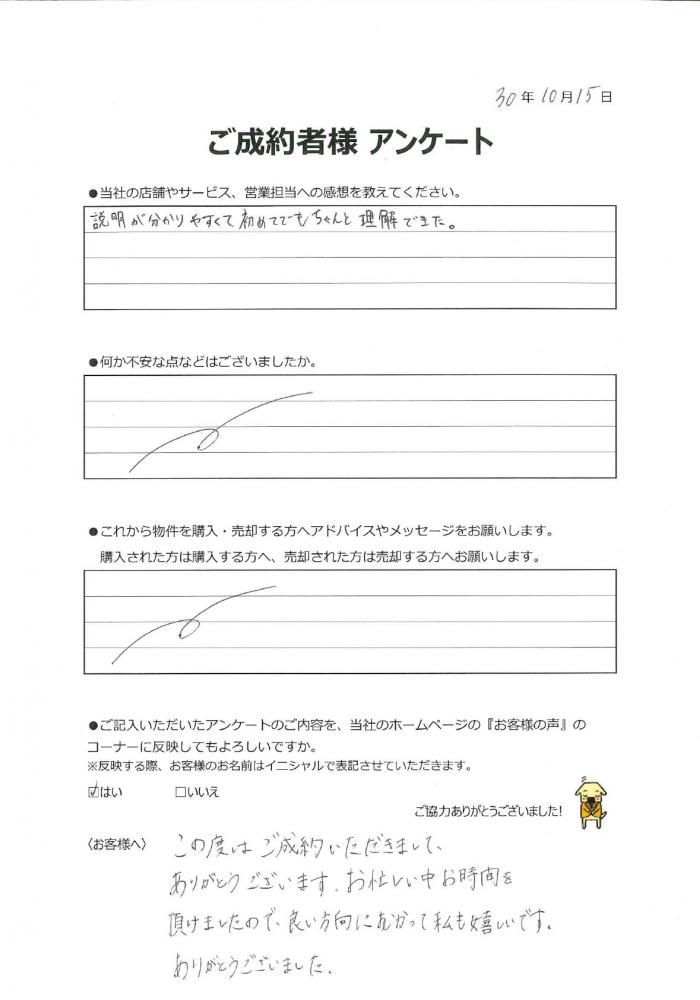 30年10月15日
ご成約者様 アンケート
●当社の店舗やサービス、営業担当への感想を教えてください。
説明が分かりやすくて初めてでもちゃんと理解できた。
●何か不安な点などはございましたか。
●これから物件を購入・売却する方へアドバイスやメッセージをお願いします。
購入された方は購入する方へ、売却された方は売却する方へお願いします。
●ご記入いただいたアンケートのご内容を、当社のホームページの『お客様の声』の
コーナーに反映してもよろしいですか。
※反映する際、お客様のお名前はイニシャルで表記させていただきます。
☑はい □いいえ
ご協力ありがとうございました!
〈お客様へ〉 この度はご成約いただきまして、
ありがとうございます。お忙しい中お時間を
頂けましたので、良い方向にむかって私も嬉しいです。
ありがとうございました。